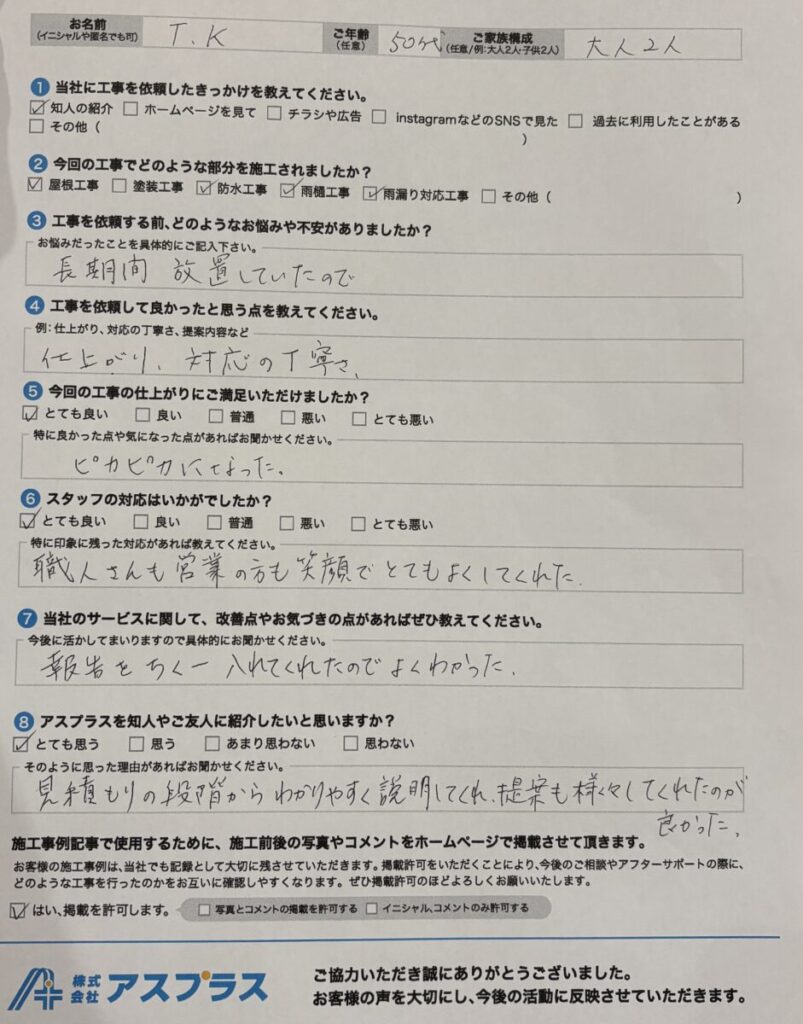 お名前 T.K ご年齢 50代 ご家族構成 大人2人
(イニシャルや匿名でも可) (任意) (任意/例:大人2人・子供2人)
1 当社に工事を依頼したきっかけを教えてください。
☑ 知人の紹介 □ ホームページを見て □ チラシや広告 □ instagramなどのSNSで見た □ 過去に利用したことがある
□ その他( )
2 今回の工事でどのような部分を施工されましたか?
☑ 屋根工事 □ 塗装工事 ☑ 防水工事 ☑ 雨樋工事 ☑ 雨漏り対応工事 □ その他( )
3 工事を依頼する前、どのようなお悩みや不安がありましたか?
お悩みだったことを具体的にご記入下さい。
長期間 放置していたので
4 工事を依頼して良かったと思う点を教えてください。
例:仕上がり、対応の丁寧さ、提案内容など
仕上がり、対応の丁寧さ、
5 今回の工事の仕上がりにご満足いただけましたか?
☑ とても良い □ 良い □ 普通 □ 悪い □ とても悪い
特に良かった点や気になった点があればお聞かせください。
ピカピカになった。
6 スタッフの対応はいかがでしたか?
☑ とても良い □ 良い □ 普通 □ 悪い □ とても悪い
特に印象に残った対応があれば教えてください。
職人さんも営業の方も笑顔でとてもよくしてくれた.
7 当社のサービスに関して、改善点やお気づきの点があればぜひ教えてください。
今後に活かしてまいりますので具体的にお聞かせください。
報告をちく一入れてくれたのでよくわかった.
8 アスプラスを知人やご友人に紹介したいと思いますか?
☑ とても思う □ 思う □ あまり思わない □ 思わない
そのように思った理由があればお聞かせください。
見積もりの段階からわかりやすく説明してくれ、提案も様々してくれたのが
良かった、
施工事例記事で使用するために、施工前後の写真やコメントをホームページで掲載させて頂きます。
お客様の施工事例は、当社でも記録として大切に残させていただきます。掲載許可をいただくことにより、今後のご相談やアフターサポートの際に、
どのような工事を行ったのかをお互いに確認しやすくなります。ぜひ掲載許可のほどよろしくお願いいたします。
☑ はい、掲載を許可します。 □ 写真とコメントの掲載を許可する □ イニシャル、コメントのみ許可する
株式会社 アスプラス
ご協力いただき誠にありがとうございました。
お客様の声を大切にし、今後の活動に反映させていただきます。